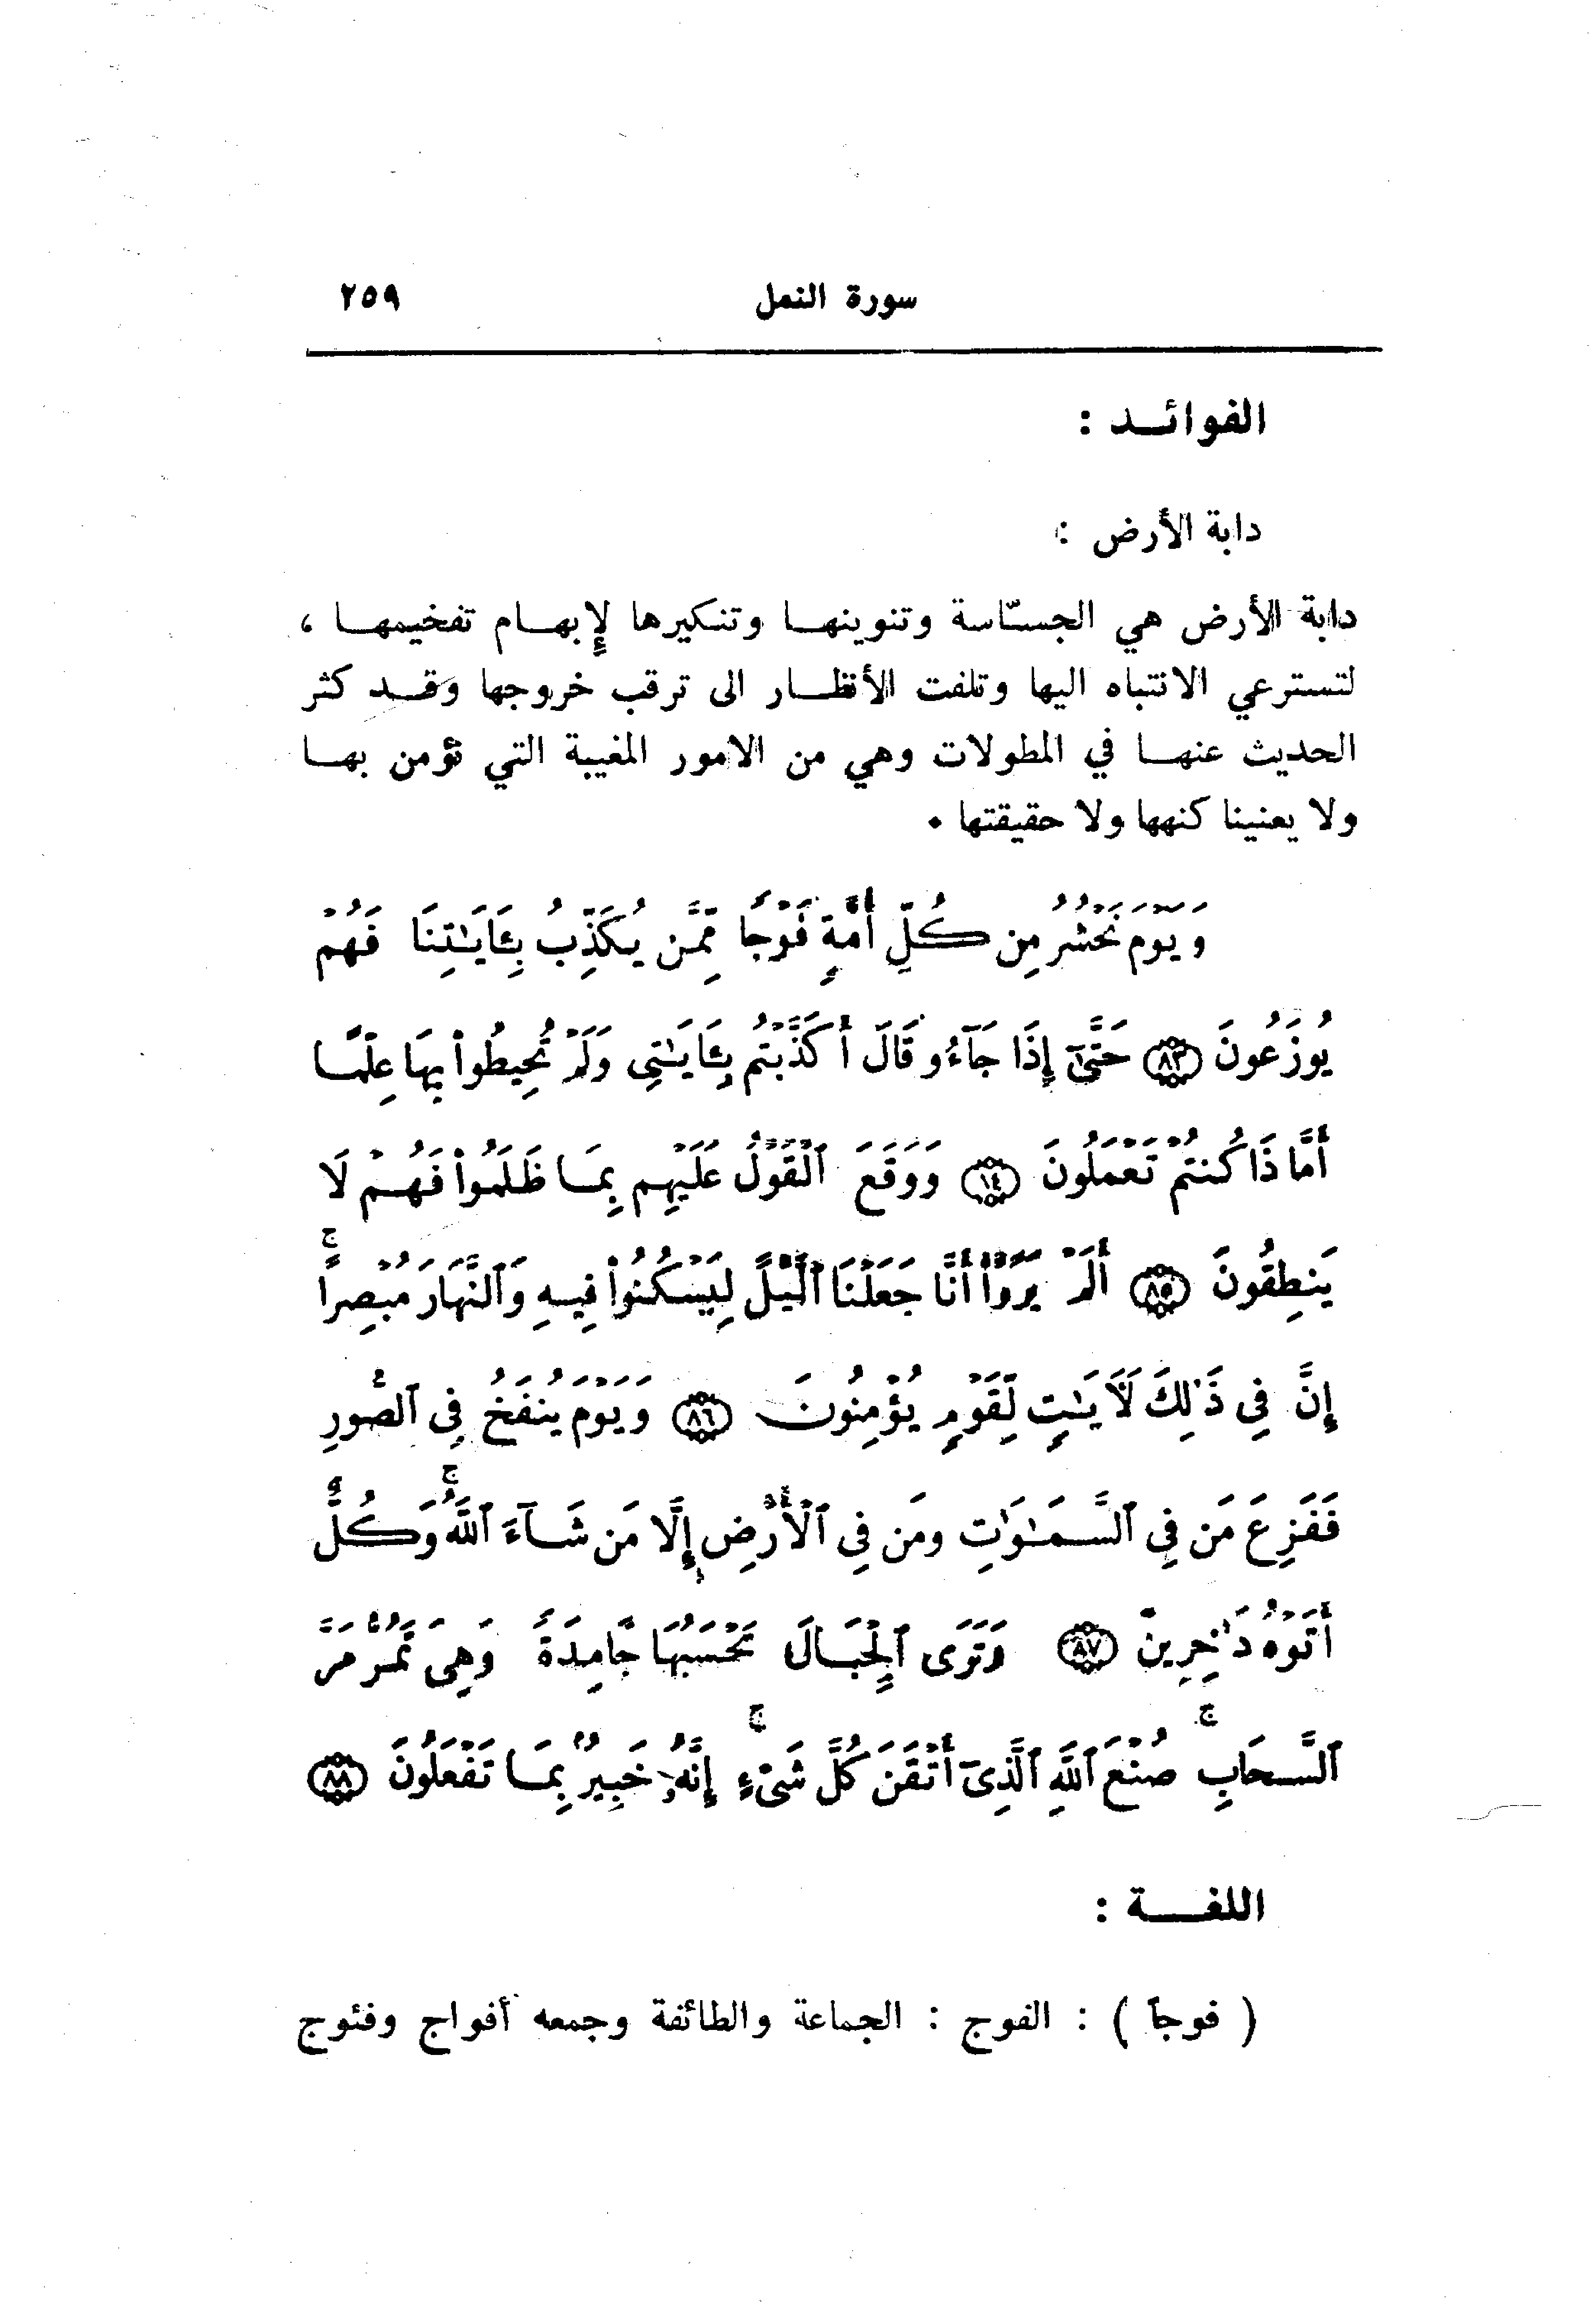 سورة النمل ٢٥٩
الفوائـد :
دابة الأرض :
دابة الأرض هي الجسّاسة وتنوينهـا وتنكيرها لإبهـام تفخيمهـا ،
لتسترعي الانتباه اليها وتلفت الأنظـار الى ترقب خروجها وقـد كثر
الحديث عنهـا في المطولات وهي من الامور المغيبة التي نؤمن بهـا
ولا يعنينا كنهها ولا حقيقتها .
وَيَوْمَ نَحْشُرُ مِن كُلِّ أُمَّةٍ فَوْجًا مِّمَّن يُكَذِّبُ بِـَٔايَـٰتِنَا فَهُمْ
يُوزَعُونَ ٨٣ حَتَّىٰٓ إِذَا جَآءُو قَالَ أَكَذَّبْتُم بِـَٔايَـٰتِى وَلَمْ تُحِيطُوا۟ بِهَا عِلْمًا
أَمَّا ذَا كُنتُمْ تَعْمَلُونَ ٨٤ وَوَقَعَ ٱلْقَوْلُ عَلَيْهِم بِمَـا ظَلَمُوا۟ فَهُـمْ لَا
يَنطِقُونَ ٨٥ أَلَمْ يَرَوْا۟ أَنَّا جَعَلْنَا ٱلَّيْلَ لِيَسْكُنُوا۟ فِيـهِ وَٱلنَّهَارَ مُبْصِرًا ۚ
إِنَّ فِى ذَٰلِكَ لَـَٔايَـٰتٍ لِّقَوْمٍ يُؤْمِنُونَ ٨٦ وَيَوْمَ يُنفَخُ فِى ٱلصُّورِ
فَفَزِعَ مَن فِى ٱلسَّـمَـٰوَٰتِ وَمَن فِى ٱلْأَرْضِ إِلَّا مَن شَـآءَ ٱللَّهُ ۚ وَكُلٌّ
أَتَوْهُ دَٰخِرِينَ ٨٧ وَتَرَى ٱلْجِبَـالَ تَحْسَبُهَا جَامِدَةً وَهِىَ تَمُرُّ مَرَّ
ٱلسَّـحَابِ ۚ صُنْعَ ٱللَّهِ ٱلَّذِىٓ أَتْقَنَ كُلَّ شَىْءٍ ۚ إِنَّهُۥ خَبِيرٌۢ بِمَـا تَفْعَلُونَ ٨٨
اللغـــة :
( فوجاً ) : الفوج : الجماعة والطائفة وجمعه أفواج وفئوج